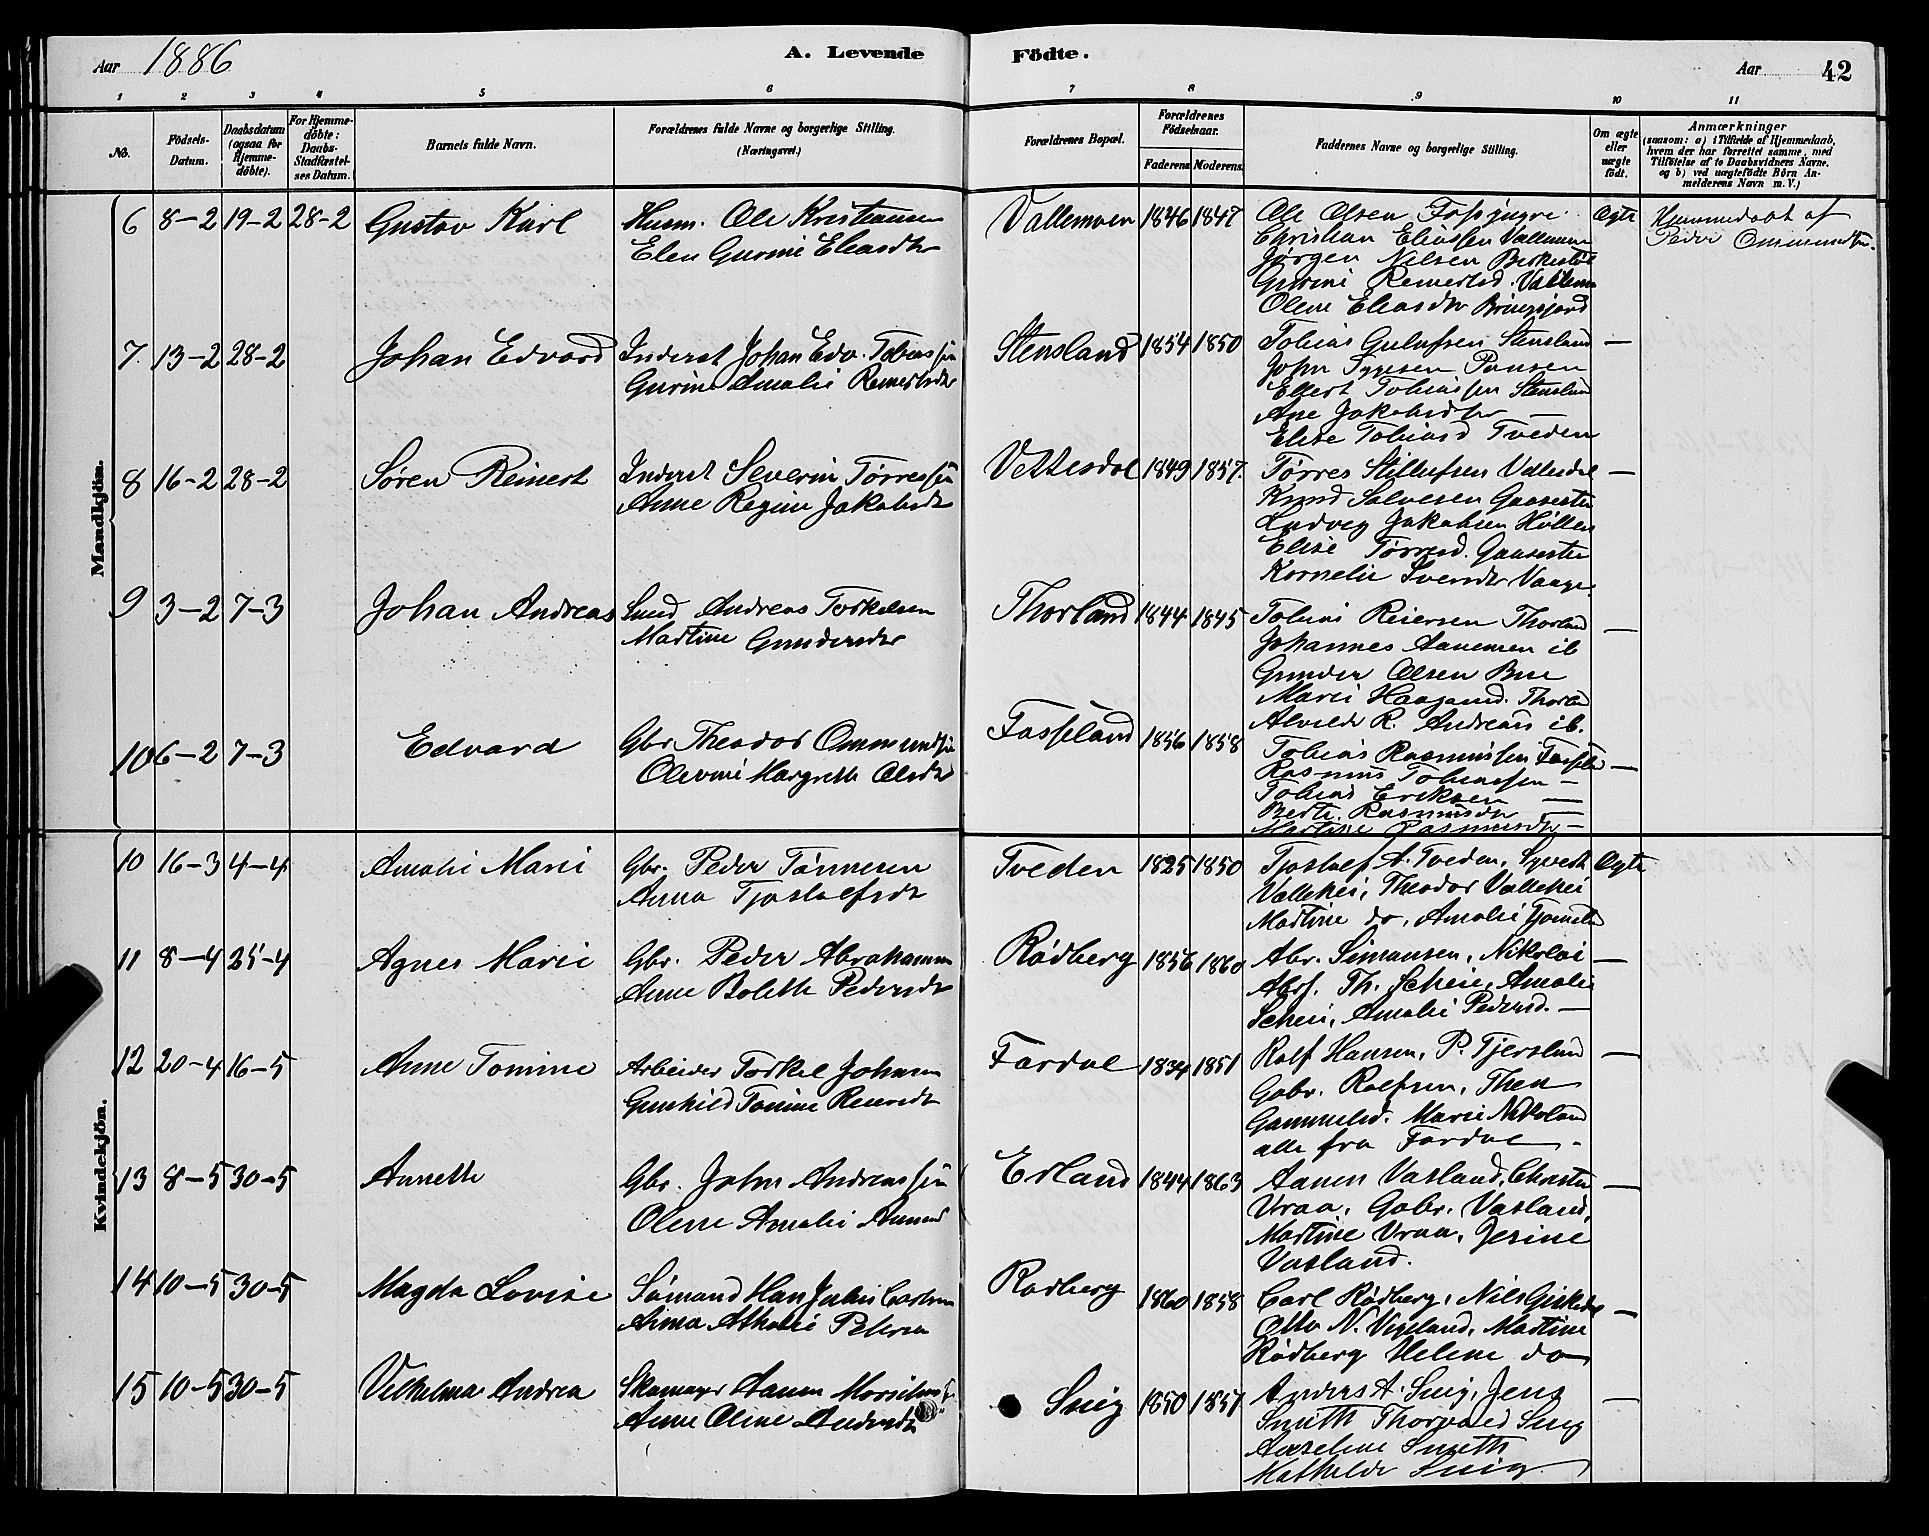 Aar 1886
A. Levende Födte.
Aar 42
1 2 3 4 5 6 7 8 9 10 11
No.
Födsels-Datum.
Daabsdatum (ogsaa for Hjemme-döbte).
For Hjemme-döbte: Daabs-Stadfæstel-ses Datum.
Barnets fulde Navn.
Forældrenes fulde Navne og borgerlige Stilling.
(Næringsvei.)
Forældrenes Bopæl.
Forældrenes Födselsaar.
Faderens. Moderens.
Faddernes Navne og borgerlige Stilling.
Om ægte eller uægte födt.
Anmærkninger
(saasom: a) i Tilfælde af Hjemmedaab,
hvem der har forrettet samme, med
Tilföielse af to Daabsvidners Navne,
og b) ved uægtefödte Börn An-
melderens Navn m. V.)
Mandkjön.
6 8-2 19-2 28-2 Gustav Karl
Husm. Ole Kristiansen
Elen Gurine Eliasdtr
Vallemoen 1846 1847
Ole Olsen
Christian Eliassen Vallemoen
Jørgen Nilsen
Gurine Reinertsd. Vallem
Olene Eliasdtr
Ægte
Hjemmedøbt af
Peder Ommundsen.
7. 13-2 28-2 Johan Edvard
Inderst Johan Edv. Tobiassen
Gurine Amalie Reinertsdtr
Stensland 1854 1850
Tobias Gulufsen Stensland —
John Tygesen
Ellert Tobiassen Stensland
Ane Jakobsdtr —
Elise Tobiasd Tveden
8 16-2 28-2 Søren Reinert
Inderst Severin Tørressen
Anne Regine Jakobsdtr
Vettesdal 1849 1857.
Tørres Stillufsen Vettesdal —
Knud Salvesen
Ludvig Jakobsen Høllen
Elise Tørresd.
Kornelie Svendsdtr Vaage
9 3-2 7-3 Johan Andreas
Smed Andreas Torkelsen
Martine Gundersdtr
Thorland 1844 1845
Tobias Reiersen Thorland —
Johannes Aanensen ib
Gunder Olsen Bue
Marie Haagensd. Thorland
Alvilde R. Andreas ib.
10 6-2 7-3 Edvard
Gbr Theodor Ommundsen
Olevine Margrethe Olsdtr
Fassland 1856 1858
Tobias Rasmussen Fassland —
Rasmus Tobiassen —
Tobias Eriksen —
Berthe Rasmusdtr —
Martine Rasmusdtr —
Kvindekjön.
10 16-3 4-4 Amalie Marie
Gbr. Peder Tønnesen
Anna Tjøstolfsdt
Tveden 1825 1850
Tjøstolf A. Tveden,
Valleheie, Theodor Valleheie
Martine do, Amalie
Ægte
11 8-4 25-4 Agnes Marie
Gbr. Peder Abrahamsen
Anne Bolette Pedersdt
Rødberg 1856 1860
Abr. Simonsen, Nikolai —
Abrs. Th. Scheie, Amalie
Scheie, Amalie Pedersd. —
12 20-4 16-5 Anne Tomine
Arbeider Torkel Johnsen
Gunhild Tomine
Fardal 1834 1851
Rolf Hansen, P. Tjersland —
Gabr. Rolfsen, Thea
Gammelsd. Marie Nikolaid
alle fra Fardal —
13 8-5 30-5 Annette
Gbr. John Andreassen
Olene Amalie Aanensd
Erland 1844 1863
Aanen Vasland, Christen —
Vraa, Gabr. Vasland,
Martine Vraa, Jesine
Vasland.
14 10-5 30-5 Magda Lovise
Sømand Hans Julius Carlsen
Anna Athalie Petersen
Rødberg 1860 1858
Carl Rødberg, Nils —
Otto N. Vigeland, Martine
Rødberg Helene do
15 10-5 30-5 Vilhelma Andrea
Skomager Aanen
Anne Oline Andersdt
Snig 1850 1851
Anders A. Snig, Jens —
Smith Thorvald Snig
Anseline Smith
Mathilde Snig